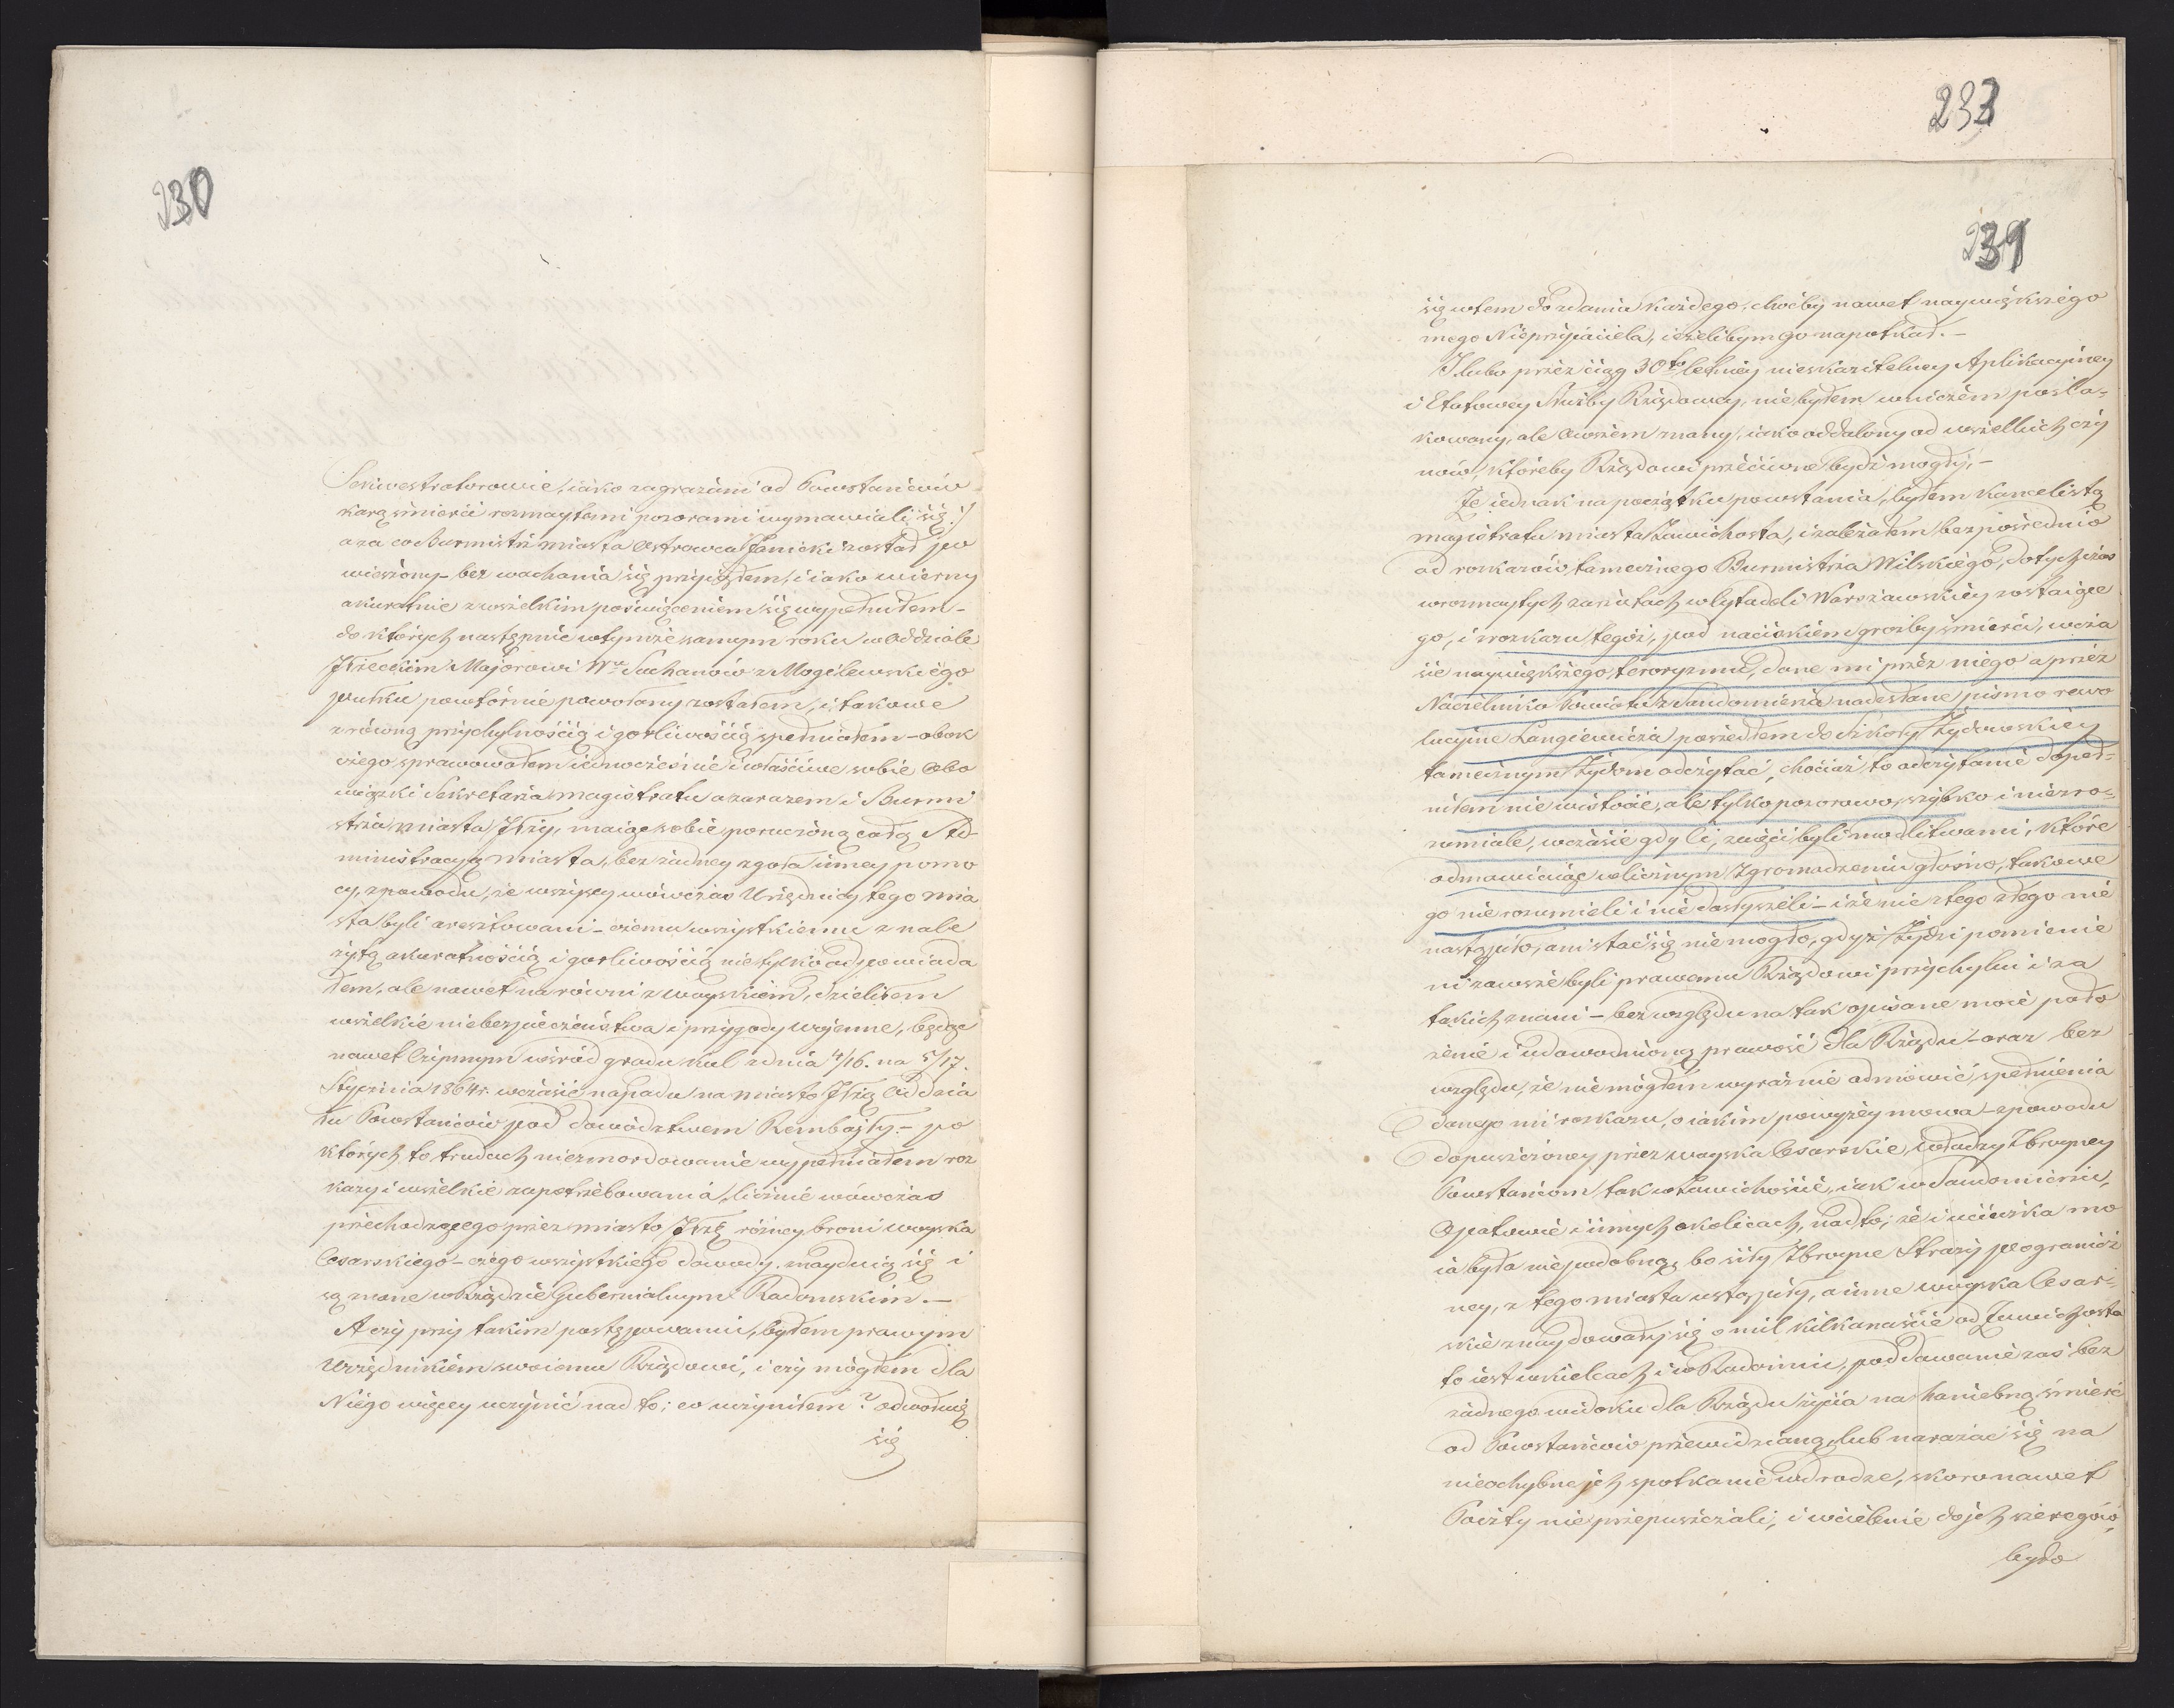 230
Sekwestratorowie, iako zagrażeni od Powstańców
karą śmierci rozmaytemi pozorami wymawiali się:/
a za co Burmistrz miasta Ostrowca Janicki został po
wieszony – bez wachania się przyiąłem, i iako wierny
akuratnie z wszelkim poświęceniem się wypełniłem –
do których następnie w tymże samym roku w Oddziale
Iłżeckim Majorowi Wu Suchanów z Mogilewskiego
pułku powtórnie powołany zostałem, i takowe
z równą przychylnością i gorliwością spełniałem – obok
czego sprawowałem iednocześnie i właściwe sobie Obo
wiązki Sekretarza magistratu a zarazem i Burmi
strza miasta Iłży, maiąc sobie poruczoną całą Ad-
ministracyą miasta, bez żadney zgoła inney pomo
cy, z powodu, że wszyscy wówczas Urzędnicy tego mia
sta byli aresztowani – czemu wszystkiemu z nale
żytą akuratnością i gorliwością nietylko odpowiada
łem, ale nawet na równi z woyskiem, dzieliłem
wszelkie niebezpieczeństwa i przygody woienne, będąc
nawet Czynnym wśród gradu kul z dnia 4/16. na 5/17.
Stycznia 1864 r. w czasie napadu na miasto Iłżę Oddzia
łu Powstańców pod dowództwem Rembajły. – po
których to trudach niezmordowanie wypełniałem roz
kazy i wszelkie zapotrzebowania, licznie wówczas
przechodzącego przez miasto Iłżę różney broni woyska
Cesarskiego – czego wszystkiego dowody znayduią się i
są znane w Rządzie Gubernialnym Radomskim. –
A czy przy takim postępowaniu, byłem prawym
Urzędnikiem swoiemu Rządowi, i czy mógłem dla
Niego więcey uczynić nad to; co uczyniłem? odwołuię
się
233
231
się w tem do zdania każdego, choćby nawet naywiększego
mego Nieprzyiaciela, ieżelibym go napotkał. –
I lubo przez ciąg 30to letniey nieskazitelney Aplikacyiney
i Etatowey Służby Rządowey, nie byłem w niczem poszla-
kowany, ale owszem znany, iako oddalony od wszelkich czy
nów, któreby Rządowi przeciwne bydź mogły, –
Że iednak na początku powstania, byłem Kancelistą
magistratu miasta Zawichosta, i zależałem bezpośrednio
od rozkazów tamecznego Burmistrza Wilskiego, dotychczas
w rozmaytych zarzutach w Cytadeli Warszawskiey zostaiące
go, i z rozkazu tegoż, pod naciskiem groźby śmierci, w cza
sie naywiększego teroryzmu, dane mi przez niego a przez
Naczelnika Powiatu z Sandomierza nadesłane pismo rewo
lucyjne Langiewicza poszedłem do Szkoły Żydowskiey
tamecznym Żydom odczytać, chociaż to odczytanie dopeł-
niłem nie w istocie, ale tylko pozorowo, szybko i niezro-
zumiale, w czasie gdy ci, zaięci byli modlitwami, które
odmawiaiąc w licznym Zgromadzeniu głośno, takowe
go nie rozumieli i nie dosłyszeli – i że nic z tego złego nie
nastąpiło, ani stać się nie mogło, gdyż Żydzi pomienie
ni zawsze byli prawemu Rządowi przychylni i za
takich znani – bez względu na tak opisane moie poło
żenie i udowodnioną prawość dla Rządu – oraz bez
względu, że nie mógłem wyraźnie odmówić, spełnienia
danego mi rozkazu, o iakim powyżey mowa – z powodu
dopuszczoney przez woyska Cesarskie, władzy Zbroyney
Powstańcom tak w Zawichoście, iak w Sandomierzu,
Opatowie i innych okolicach, nadto, że i ucieczka mo
ia była niepodobną, bo siły Zbroyne Straży pogranicz
ney, z tego miasta ustąpiły, a inne woyska Cesar-
skie znaydowały się o mil kilkanaście od Zawichosta
to iest w Kielcach i w Radomiu, poddawanie zaś bez
żadnego widoku dla Rządu życia na haniebną śmierć
od Powstańców przewidzianą, lub narażać się na
nieochybne ich spotkanie w drodze, skoro nawet
Poczty nie przepuszczali, i wcielenie do ich szeregów,
było